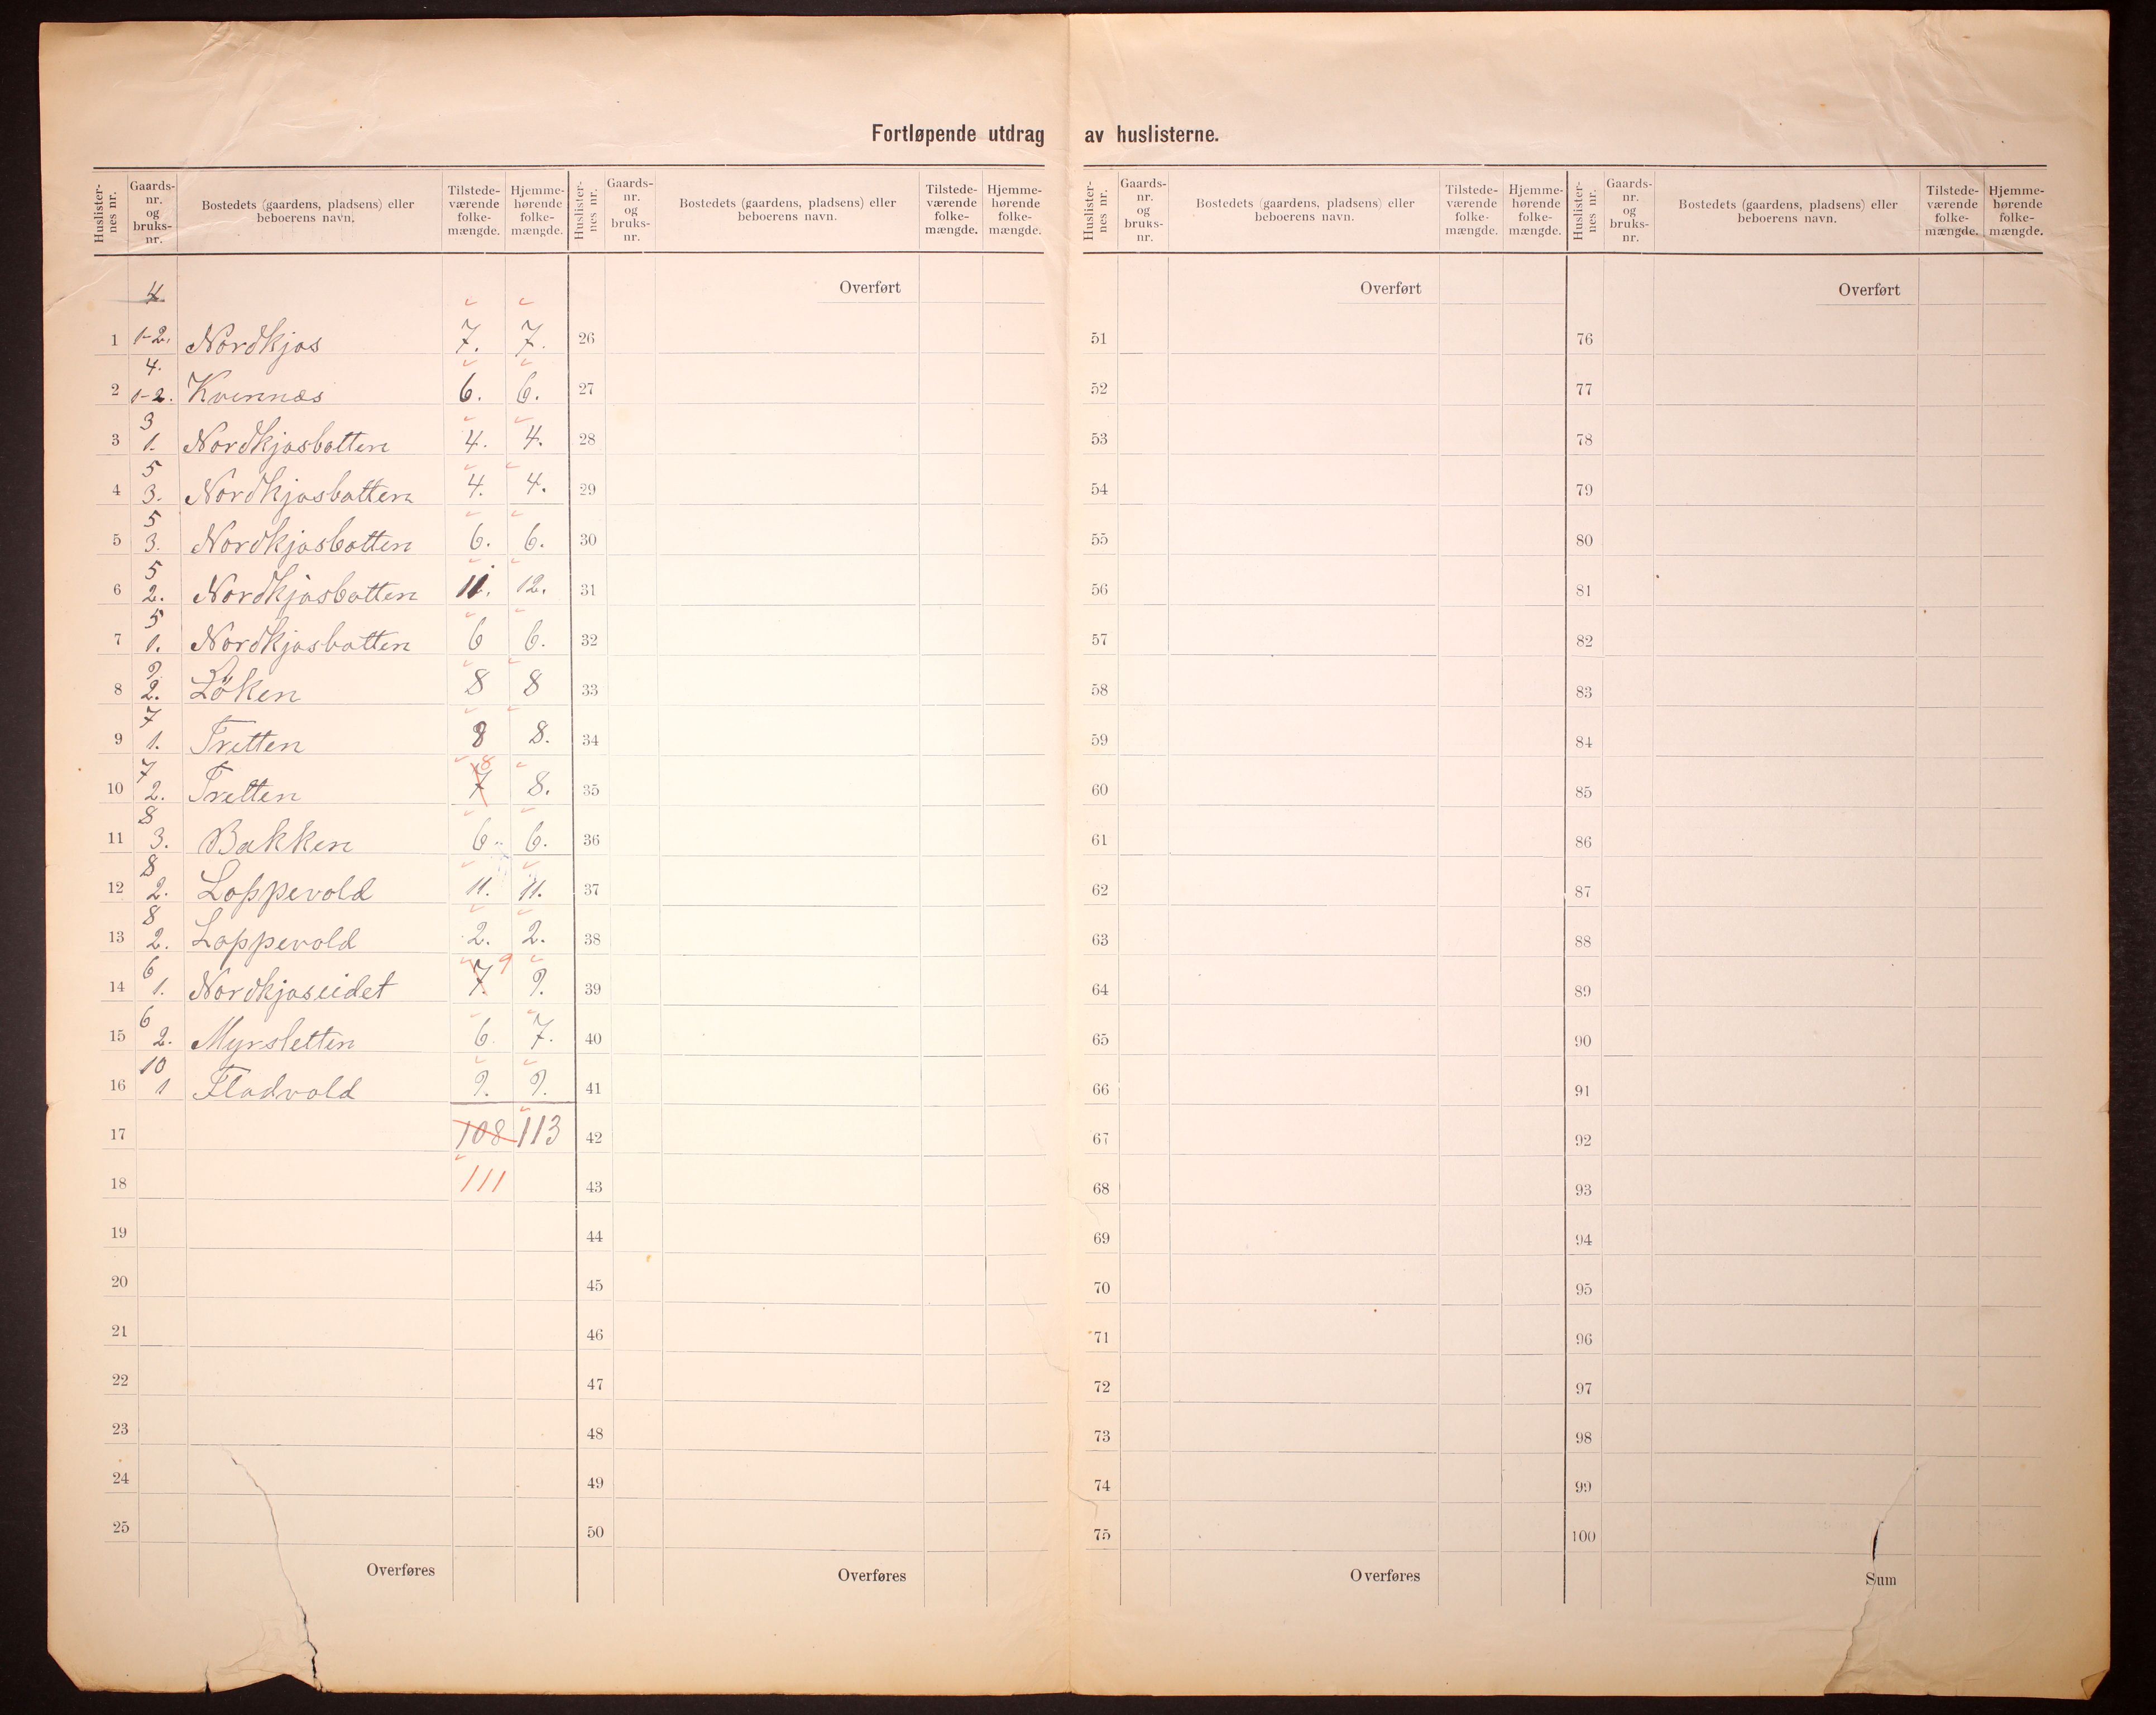 Fortløpende utdrag av huslisterne.
Huslister-nes nr. Gaards-nr. og bruks-nr. Bostedets (gaardens, pladsens) eller beboerens navn. Tilstede-værende folke-mængde. Hjemme-hørende folke-mængde. Huslister-nes nr. Gaards-nr. og bruks-nr. Bostedets (gaardens, pladsens) eller beboerens navn. Tilstede-værende folke-mængde. Hjemme-hørende folke-mængde. Huslister-nes nr. Gaards-nr. og bruks-nr. Bostedets (gaardens, pladsens) eller beboerens navn. Tilstede-værende folke-mængde. Hjemme-hørende folke-mængde. Huslister-nes nr. Gaards-nr. og bruks-nr. Bostedets (gaardens, pladsens) eller beboerens navn. Tilstede-værende folke-mængde. Hjemme-hørende folke-mængde.
4 Overført Overført Overført
1 1-2. Nordkjos 7. 7. 26 51 76
4.
2 1-2. Kvennæs 6. 6. 27 52 77
3
3 1. Nordkjosbotten 4. 4. 28 53 78
5
4 3. Nordkjosbotten 4. 4. 29 54 79
5
5 3. Nordkjosbotten 6. 6. 30 55 80
5
6 2. Nordkjosbotten 11. 12. 31 56 81
5
7 1. Nordkjosbotten 6 6. 32 57 82
9
8 2. Løken 8 8 33 58 83
7
9 1. Tretten 8 8. 34 59 84
7 8
10 2. Tretten 7 8. 35 60 85
8
11 3. Bakken 6. 6. 36 61 86
8
12 2. Loppevold 11. 11. 37 62 87
8
13 2. Loppevold 2. 2. 38 63 88
6 9
14 1. Nordkjoseidet 7. 9. 39 64 89
6
15 2. Myrsletten 6. 7. 40 65 90
10
16 1 Fladvold 9. 9. 41 66 91
17 108 113 42 67 92
18 111 43 68 93
19 44 69 94
20 45 70 95
21 46 71 96
22 47 72 97
23 48 73 98
24 49 74 99
25 50 75 100
Overføres Overføres Overføres Sum